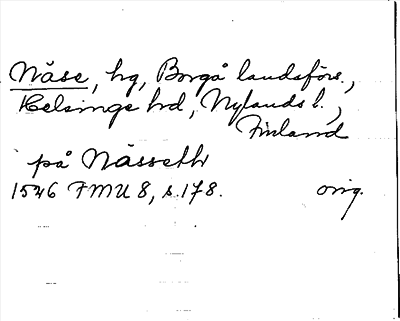 Näse, hg, Borgå landsförs.,
Helsinge hd, Nylands l.,
Finland
på Nässeth
1546 FMU 8, s. 178. orig.